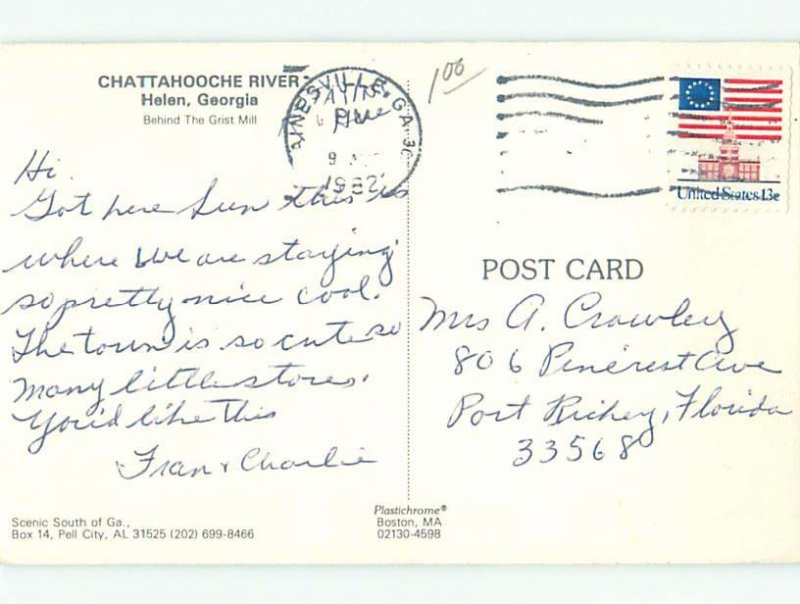 CHATTAHOOCHE RIVER
Helen, Georgia
Behind The Grist Mill
Hi
Got here Sun this is
where we are staying
so pretty nice cool.
The town is so cute so
many little stores.
You'd like this
Fran & Charlie
Scenic South of Ga.,
Box 14, Pell City, AL 31525 (202) 699-8466
Plastichrome®
Boston, MA
02130-4598
INESVILLE, GA 30
9
1982
1.00
United States 13c
POST CARD
Mrs A. Crowley
806 Pinecrest Ave
Port Richey, Florida
33568